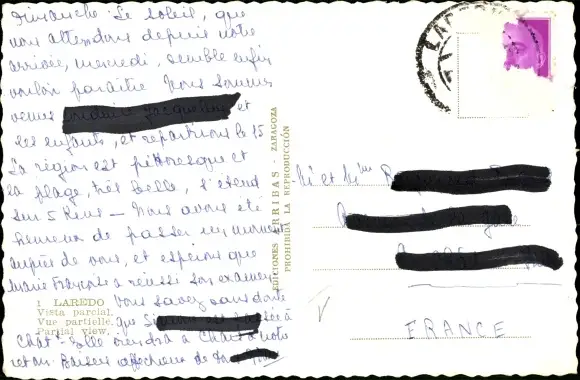 Dimanche Le soleil, que
nous attendons depuis notre
arrivée, mercredi, semble enfin
vouloir paraître Nous sommes
venus et
les enfants, et repartirons le 15
La région est pittoresque et
la plage, très belle, s'étend
sur 5 Kms – Nous avons été
heureux de passer un moment
auprès de vous, et espérons que
Marie Françoise a réussi son examen.
Vous savez sans doute
que à
Chat. Elle viendra à notre
retour. Baisers affectueux de
1 LAREDO
Vista parcial.
Vue partielle.
Partial view.
EDICIONES ARRIBAS - ZARAGOZA
PROHIBIDA LA REPRODUCCIÓN
LAREDO
M et Mme
FRANCE